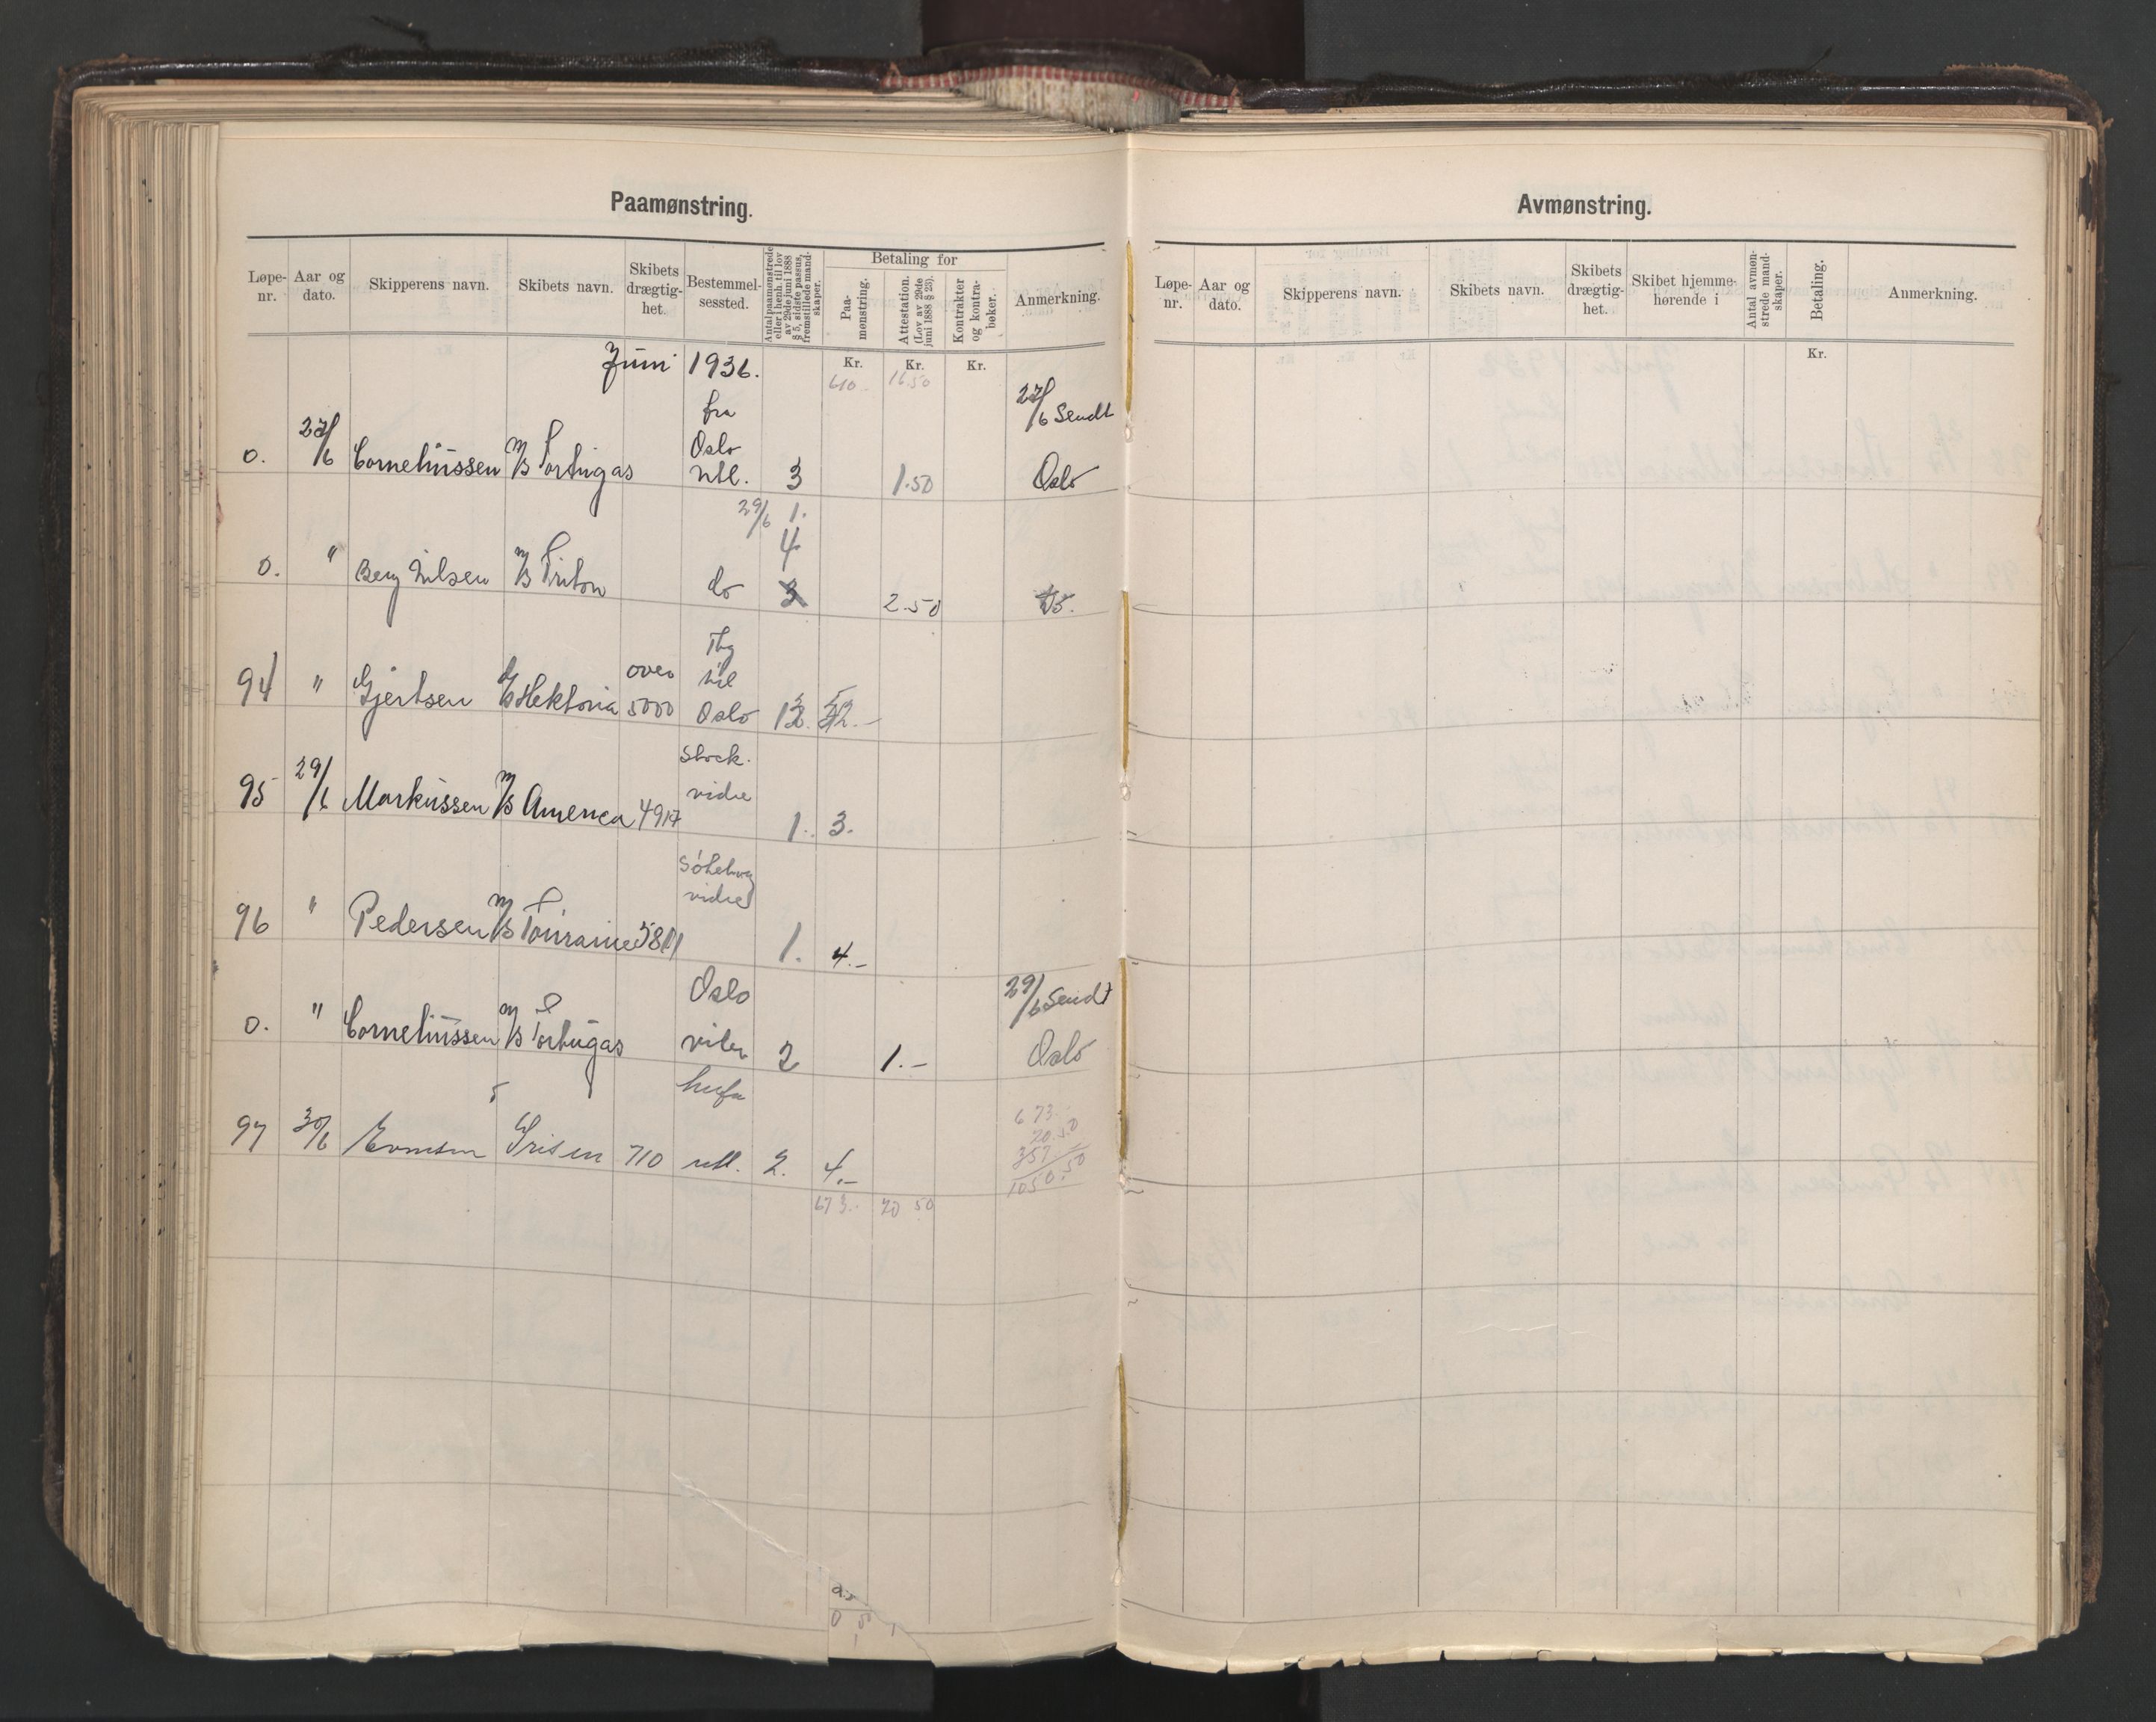 Paamønstring.
Løpe-nr. Aar og dato. Skipperens navn. Skibets navn. Skibets drægtig-het. Bestemmel-sessted. Antal paamønstrede eller i henh. til lov av 29de juni 1888 § 5, sidste passus, fremstillede mand-skaper. Betaling for Paa-mønstring. Attestation. (Lov av 29de juni 1888 § 23). Kontrakter og kontra-bøker. Anmerkning.
Kr. Kr. Kr.
Juni 1936.
610.- 16.50
27/6 Sendt
fra
Oslo
0. 27/6 Corneliussen M/S Tortugas utl. 3 1.50 Oslo
29/6 1.
4
0. " Berg Nilsen M/S Triton do 3 2.50
Tbg
over til
94 " Gjertsen Hektoria 5000 Oslo
Stock.
vidre
95 29/6 Markussen M/S America 4917 1. 3.
vidre
96 " Pedersen M/S Touraine 5811 1. 4.-
29/6 Sendt
Oslo
0. " Corneliussen M/S Tortugas 2 1.- Oslo
97 30/6 710 utl. 2. 4.-
673.-
20.50
357
1050.50
673.- 20 50
Avmønstring.
Løpe-nr. Aar og dato. Skipperens navn. Skibets navn. Skibets drægtig-het. Skibet hjemme-hørende i Antal avmøn-strede mand-skaper. Betaling. Anmerkning.
Kr.